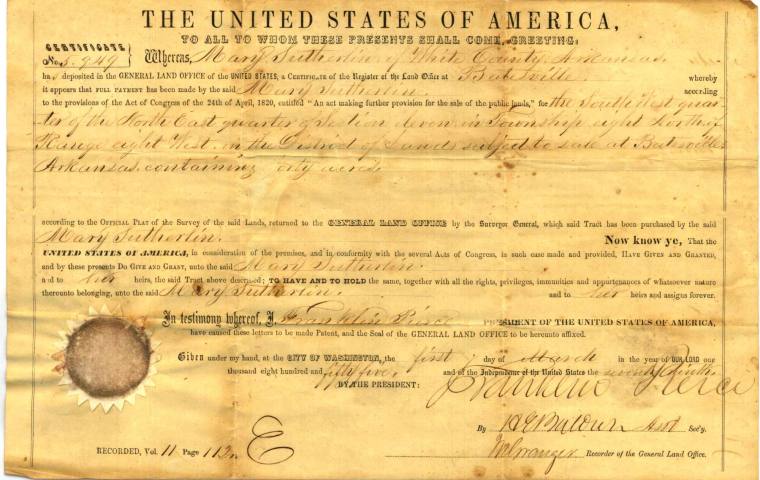 THE UNITED STATES OF AMERICA,
TO ALL TO WHOM THESE PRESENTS SHALL COME, GREETING:
CERTIFICATE
No. 5.949 } Whereas, Mary Sutherlin of White County, Arkansas.
ha deposited in the GENERAL LAND OFFICE of the UNITED STATES, a Certificate of the Register of the Land Office at Batesville whereby
it appears that FULL PAYMENT has been made by the said Mary Sutherlin according
to the provisions of the Act of Congress of the 24th of April, 1820, entitled "An act making further provision for the sale of the public lands," for the South West quar-
ter of the North East quarter of Section in Township eight North of
Range eight West. in the District of Lands subject to sale at Batesville
Arkansas. containing acres
according to the OFFICIAL PLAT of the Survey of the said Lands, returned to the GENERAL LAND OFFICE by the Surveyor General, which said Tract has been purchased by the said
Mary Sutherlin. Now know ye, That the
UNITED STATES OF AMERICA, in consideration of the premises, and in conformity with the several Acts of Congress, in such case made and provided, HAVE GIVEN AND GRANTED,
and by these presents DO GIVE AND GRANT, unto the said Mary Sutherlin.
and to her heirs, the said Tract above described; TO HAVE AND TO HOLD the same, together with all the rights, privileges, immunities and appurtenances of whatsoever nature
thereunto belonging, unto the said Mary Sutherlin and to her heirs and assigns forever.
In testimony whereof, I, Franklin Pierce PRESIDENT OF THE UNITED STATES OF AMERICA,
have caused these letters to be made Patent, and the Seal of the GENERAL LAND OFFICE to be hereunto affixed.
Given under my hand, at the CITY OF WASHINGTON, the first day of March in the year of OUR LORD one
thousand eight hundred and fifty five, and of the Independence of the United States the seventy ninth
BY THE PRESIDENT: Franklin Pierce
By H E Baldwin Asst Sec'y.
RECORDED, Vol. 11 Page 112 E Granger Recorder of the General Land Office.